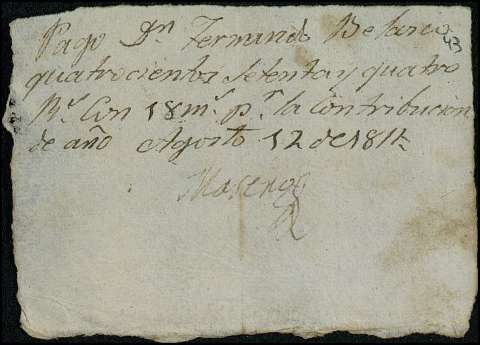 Pago Dn Fernando Belasco
43
quatrocientos setenta y quatro
Rs. Con 18 ms. pr. la Contribucion
de año Agosto 12 de 1814
Moreno